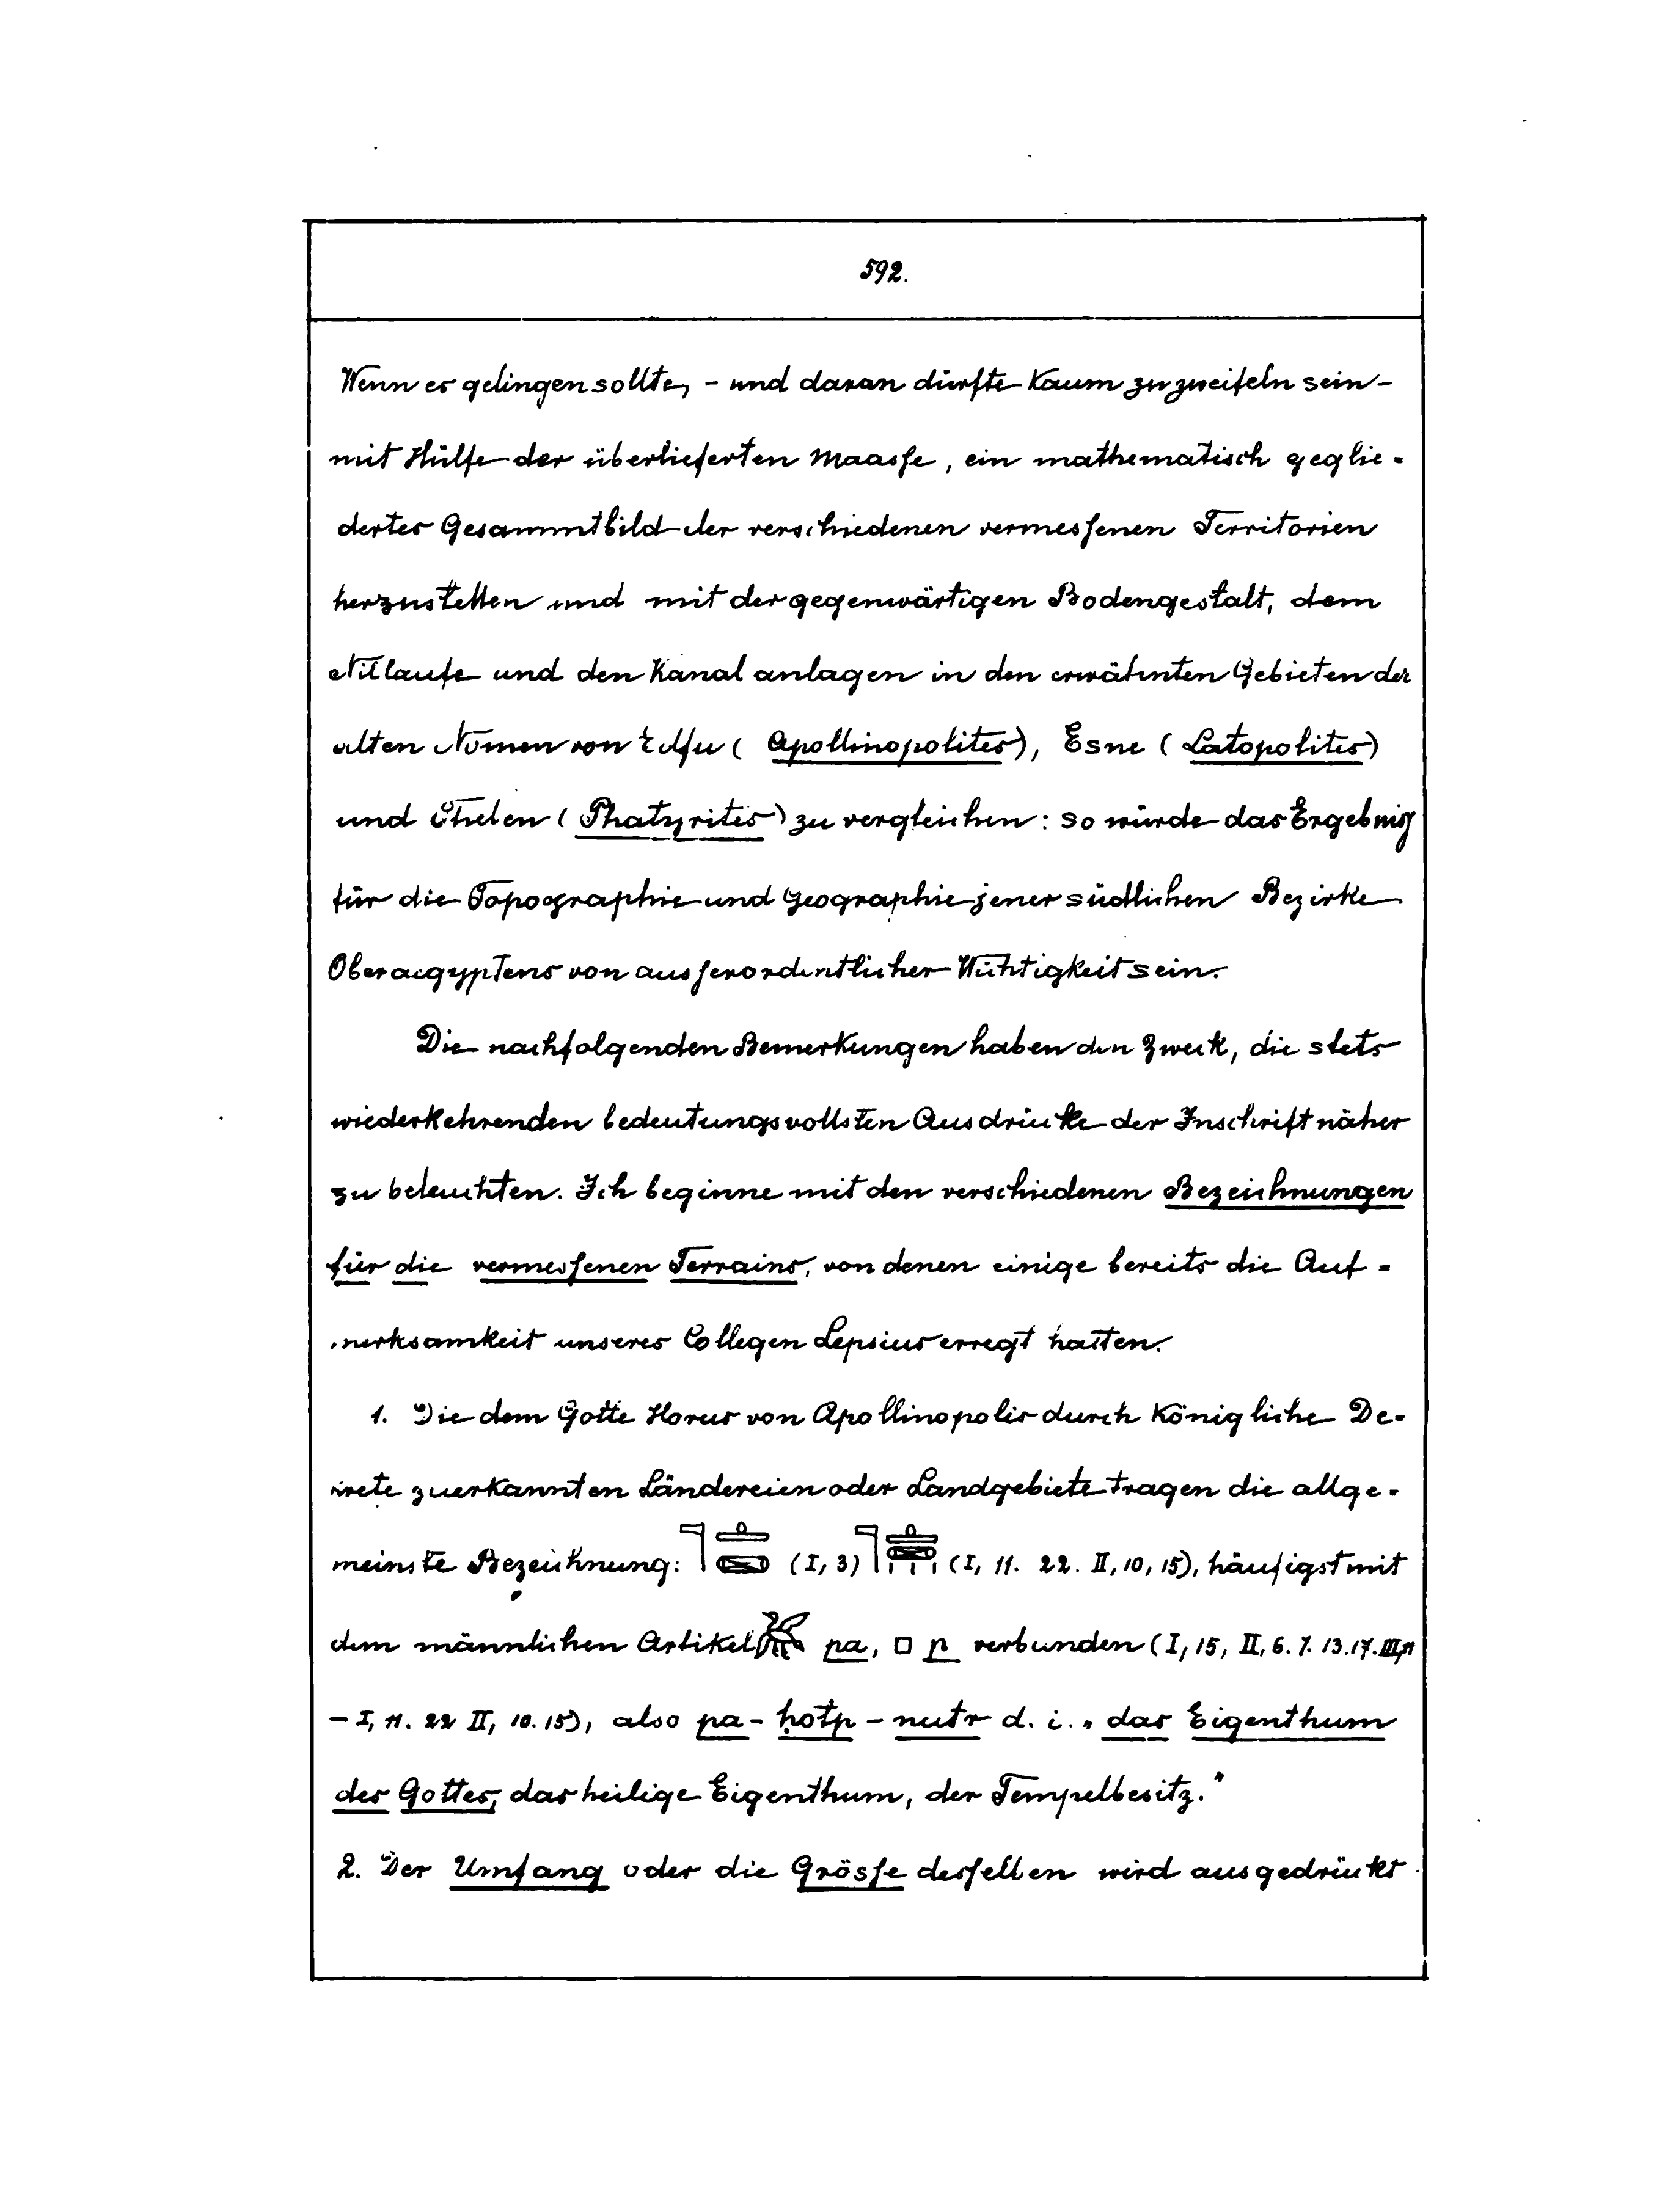 592.
Wenn es gelingen sollte, - und daran dürfte kaum zu zweifeln sein -
mit Hülfe der überlieferten Maasse, ein mathematisch geglie-
dertes Gesammtbild der verschiedenen vermessenen Territorien
herzustellen und mit der gegenwärtigen Bodengestalt, dem
Nillaufe und den Kanalanlagen in den erwähnten Gebieten der
alten Nomen von Edfu (Apollinopolites), Esne (Latopolites)
und Theben (Phatyrites) zu vergleichen: so würde das Ergebniss
für die Topographie und Geographie jener südlichen Bezirke
Oberaegyptens von ausserordentlicher Wichtigkeit sein.
Die nachfolgenden Bemerkungen haben den Zweck, die stets
wiederkehrenden bedeutungsvollsten Ausdrücke der Inschrift näher
zu beleuchten. Ich beginne mit den verschiedenen Bezeichnungen
für die vermessenen Terrains, von denen einige bereits die Auf-
merksamkeit unseres Collegen Lepsius erregt hatten.
1. Die dem Gotte Horus von Apollinopolis durch Königliche De-
crete zuerkannten Ländereien oder Landgebiete tragen die allge-
meinste Bezeichnung: (I, 3) (I, 11. 22. II, 10, 15), häufigst mit
dem männlichen Artikel pa, p verbunden (I, 15, II, 6. 7. 13. 17. III, 11
- I, 11. 22 II, 10. 15), also pa - ḥotp - nutr d. i. „das Eigenthum
des Gottes, das heilige Eigenthum, der Tempelbesitz."
2. Der Umfang oder die Grösse desselben wird ausgedrückt